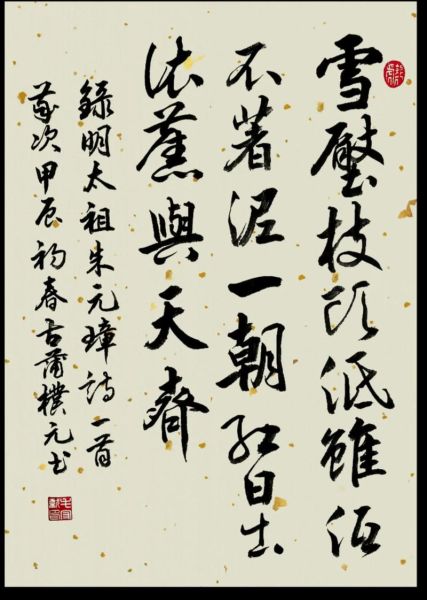 雪壓枝頭低雖低
不著泥一朝紅日出
依舊與天齊
錄明太祖朱元璋詩一首
歲次甲辰初春古蒲樸元书